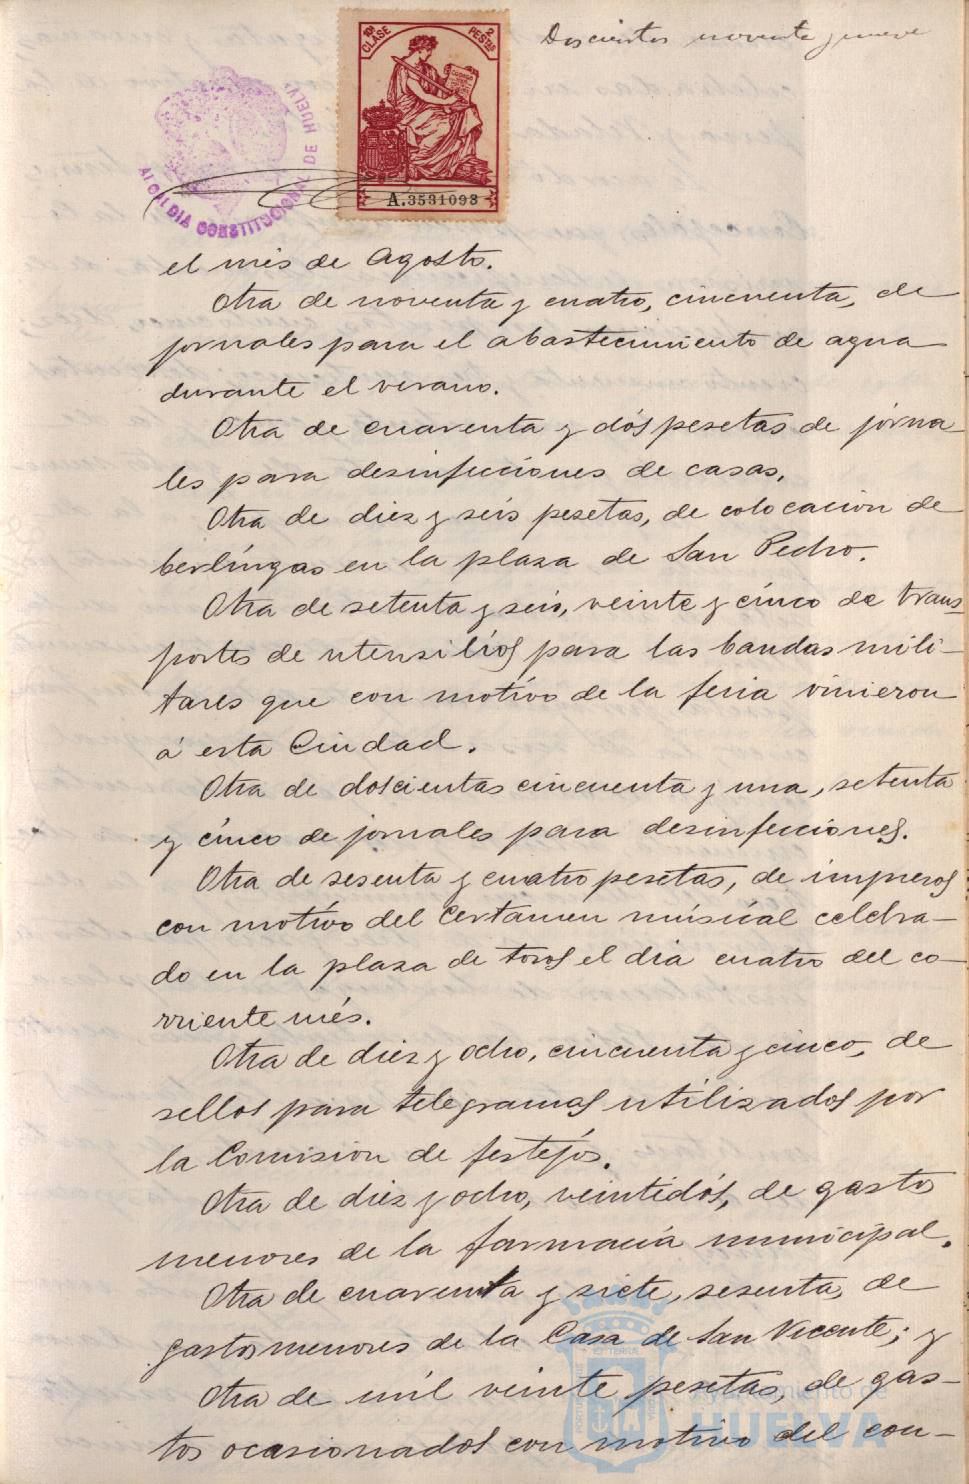 Doscientos noventa y nueve
10ª CLASE
2 PESTAS
A.3531098
ALCALDIA CONSTITUCIONAL DE HUELVA
el mes de Agosto.
Otra de noventa y cuatro, cincuenta, de
jornales para el abastecimiento de agua
durante el verano.
Otra de cuarenta y dós pesetas de jorna-
les para desinfecciones de casas.
Otra de diez y seis pesetas, de colocación de
berlingas en la plaza de San Pedro.
Otra de setenta y seis, veinte y cinco de trans-
portes de utensilios para las bandas mili-
tares que con motivo de la feria vinieron
á esta Ciudad.
Otra de doscientas cincuenta y una, setenta
y cinco de jornales para desinfecciones.
Otra de sesenta y cuatro pesetas, de impresos
con motivo del Certamen músical celebra-
do en la plaza de toros el dia cuatro del co-
rriente més.
Otra de diez y ocho, cincuenta y cinco, de
sellos para telegramas utilizados por
la Comision de festejos.
Otra de diez y ocho, veintidós, de gastos
menores de la farmacia municipal.
Otra de cuarenta y siete, sesenta, de
gastos menores de la Casa de San Vicente; y
Otra de mil veinte pesetas, de gas-
tos ocasionados con motivo del con-
Ayuntamiento de
HUELVA